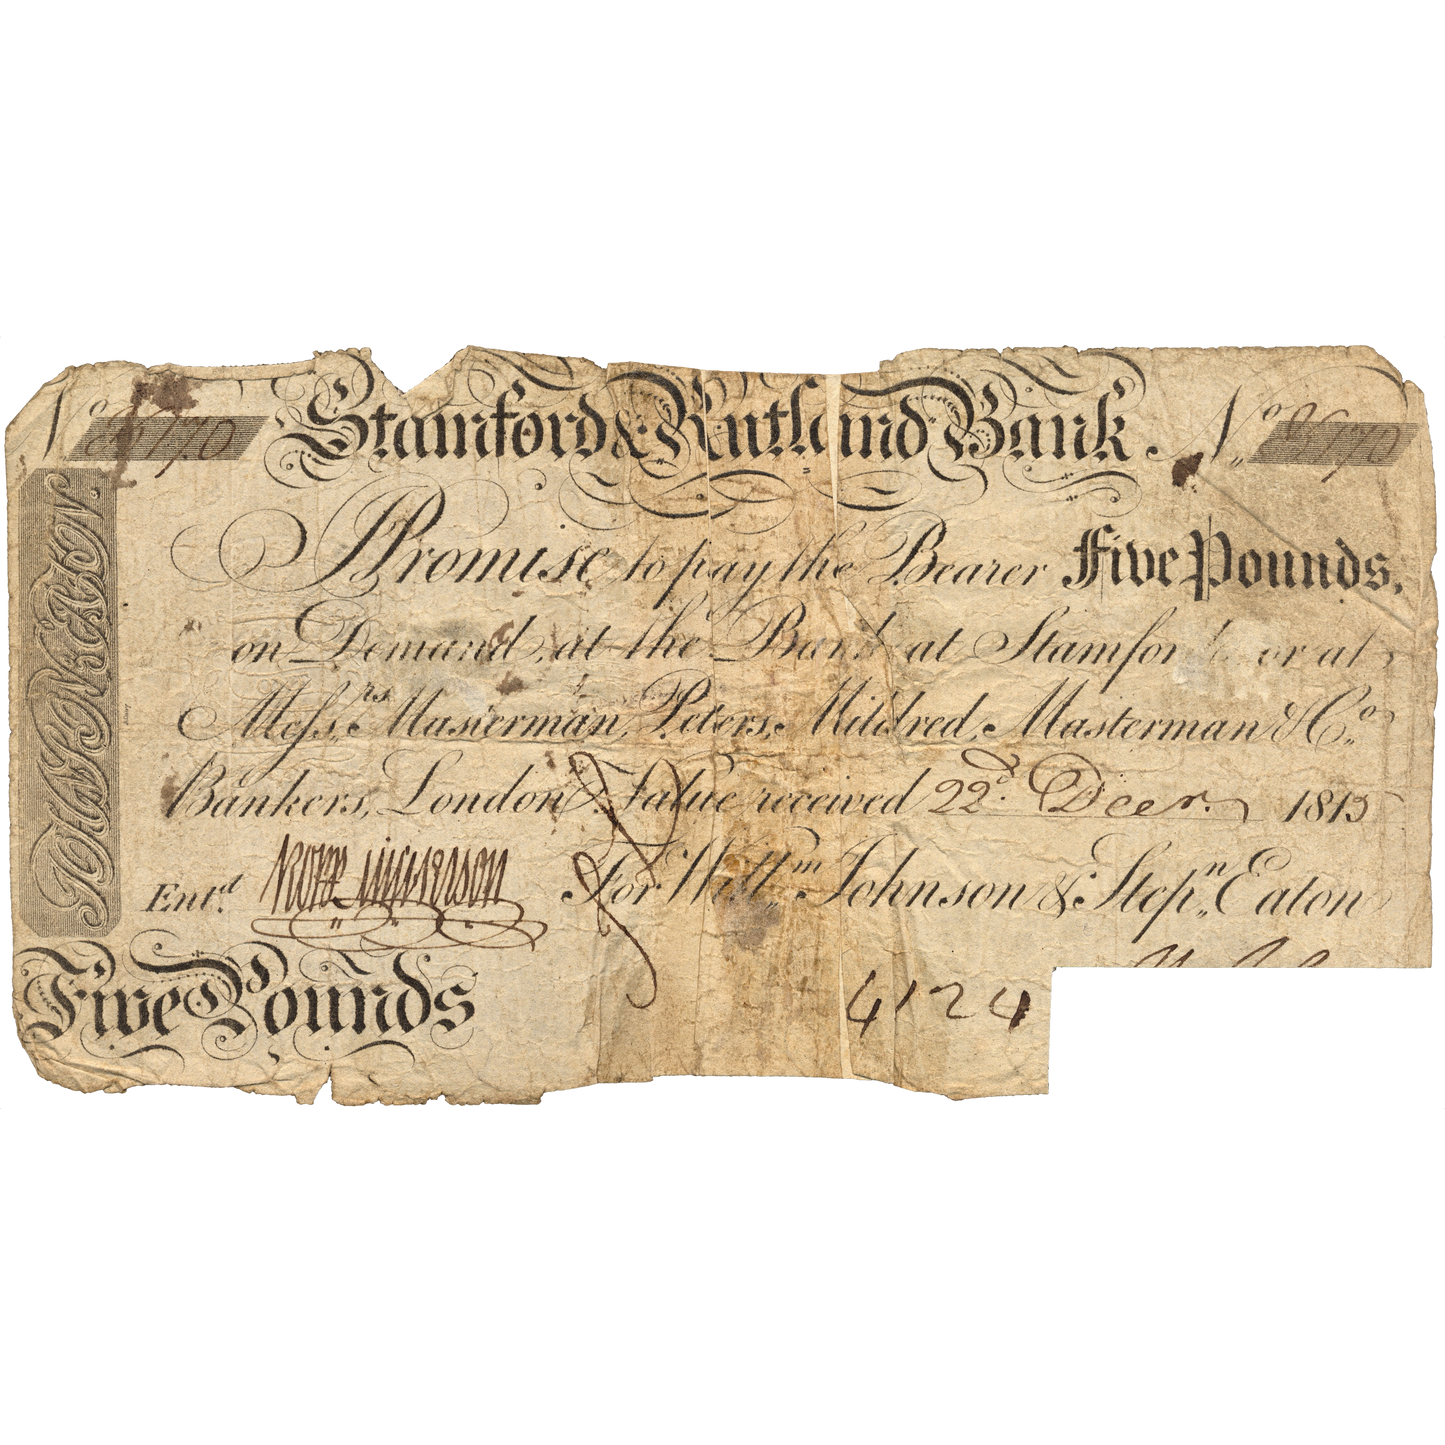 No. 8670 Stamford & Rutland Bank No. 8670
I Promise to pay the Bearer Five Pounds,
on Demand, at the Bank at Stamford or at
Messrs. Masterman, Peters, Mildred, Masterman & Co.
Bankers, London, Value received 22d. Decer. 1815
Entd. For Willm. Johnson & Stepn. Eaton
Five Pounds
4124
JOHNSON & EATON.